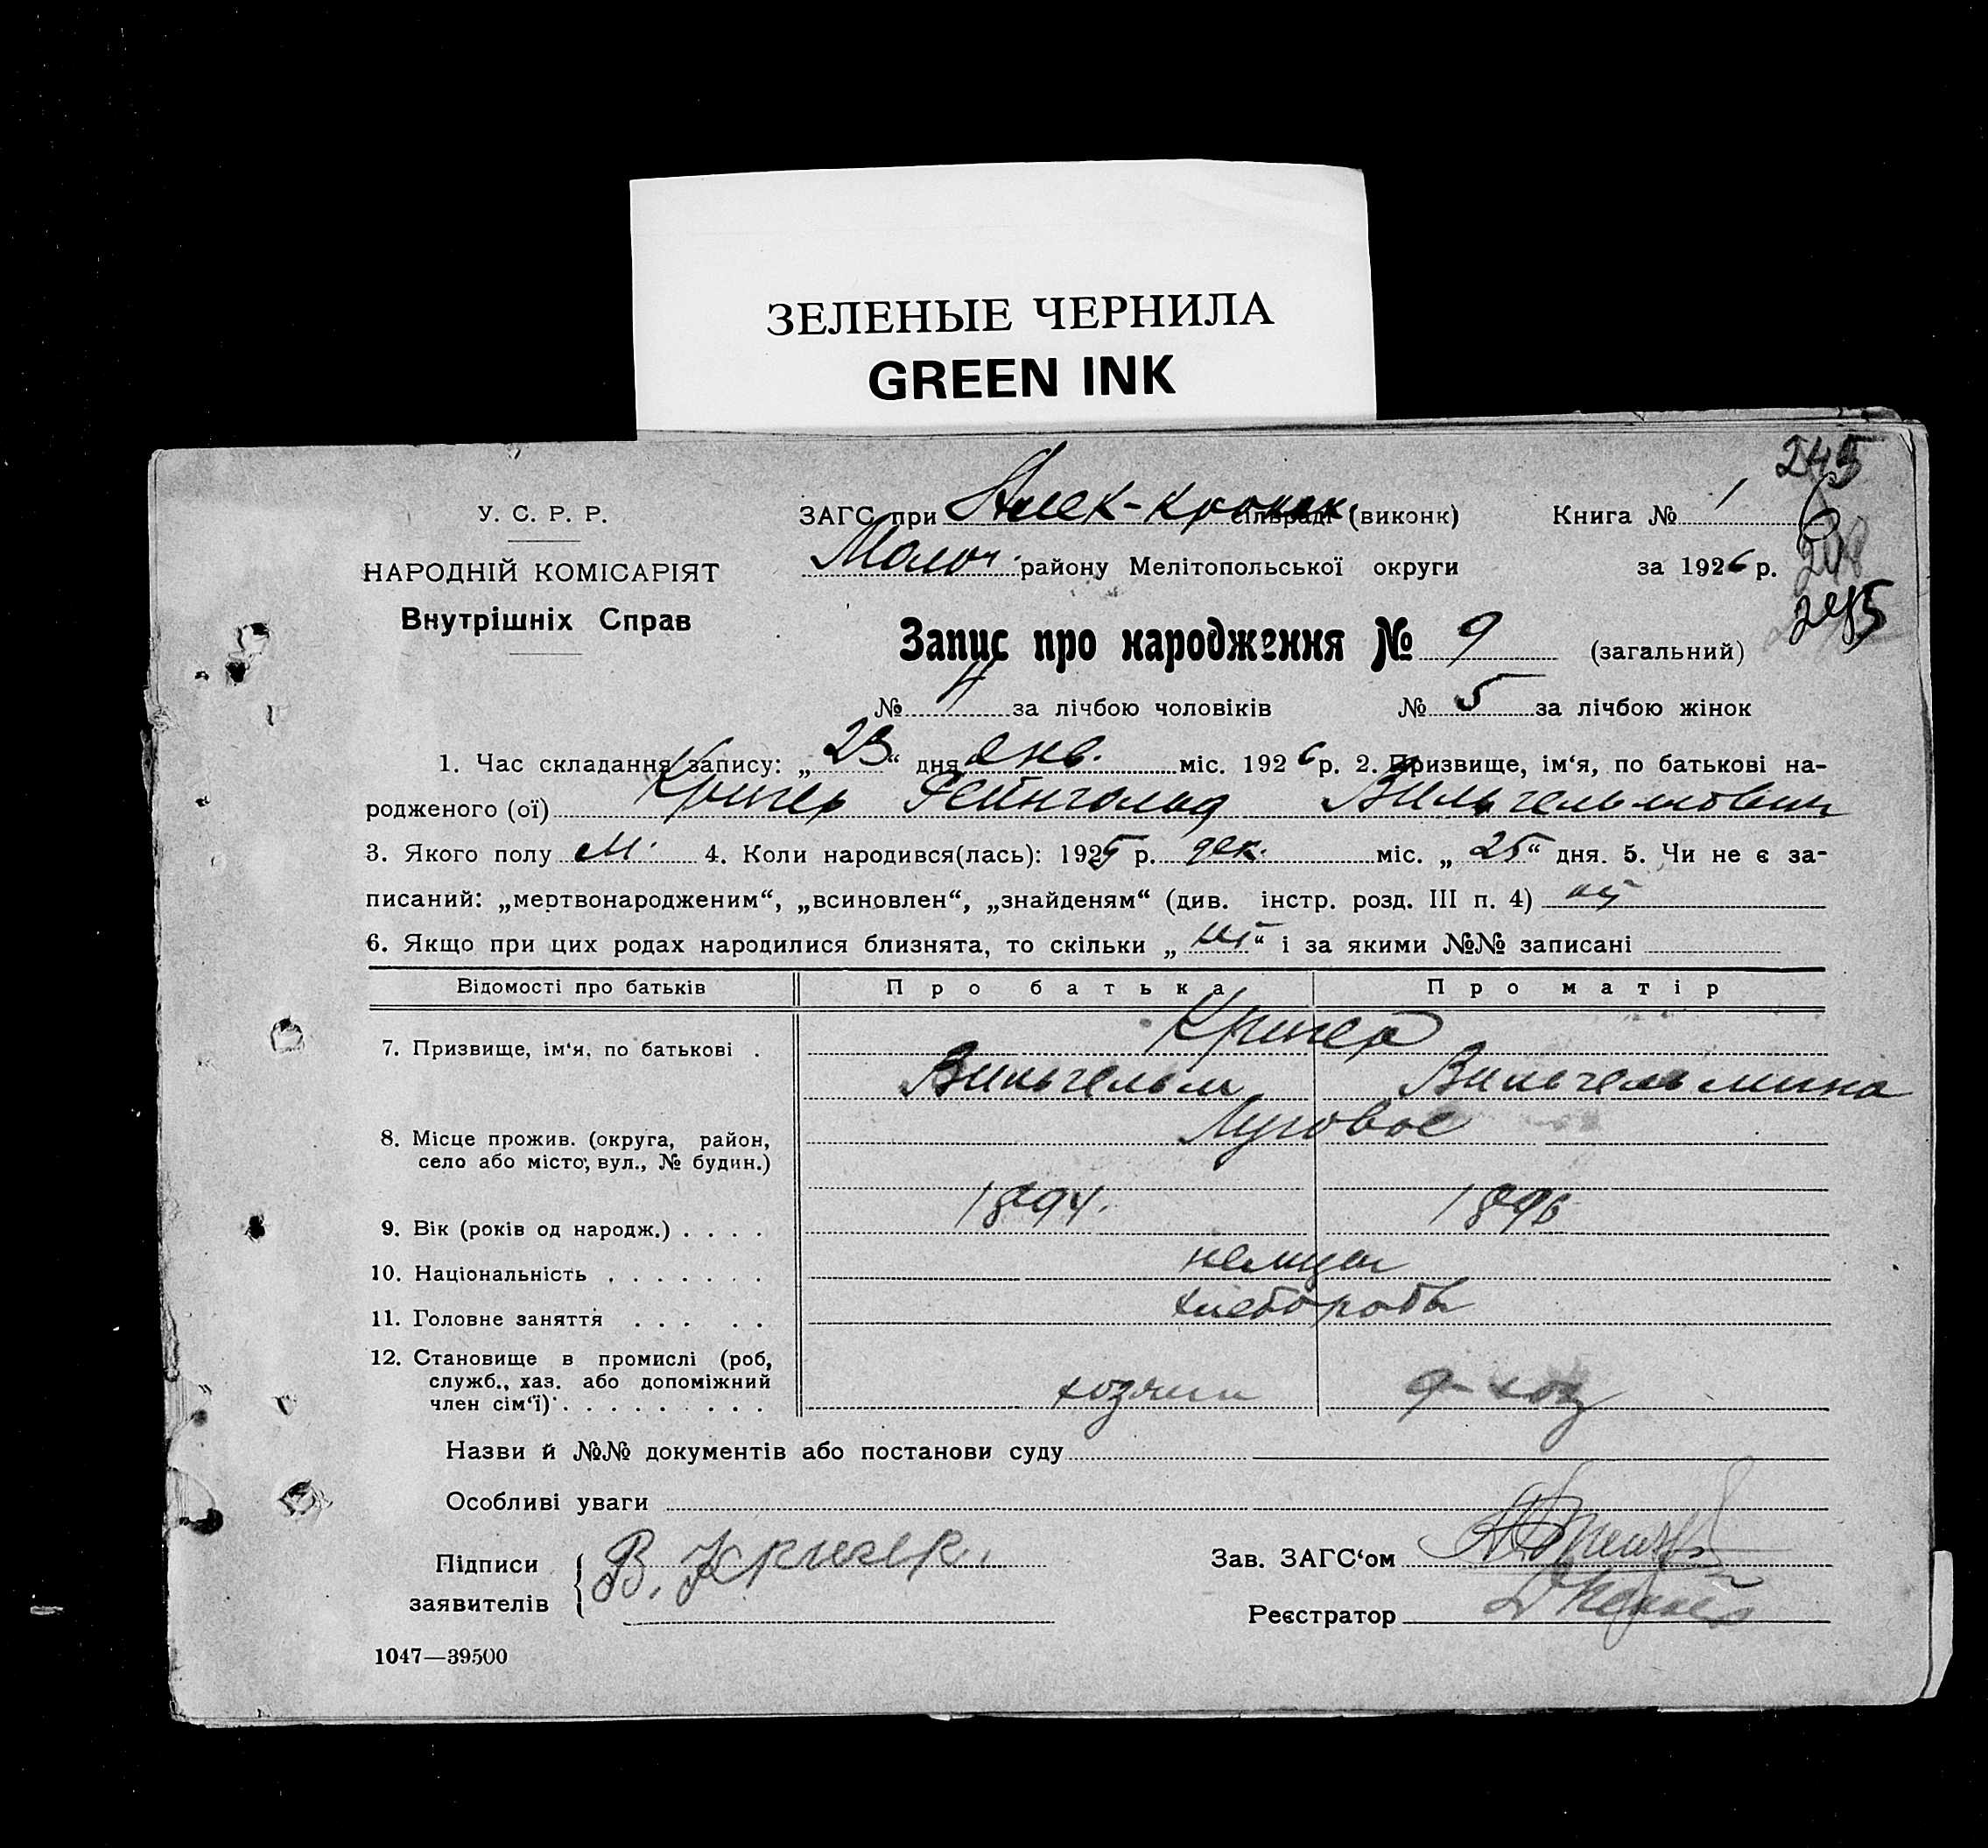 ЗЕЛЕНЫЕ ЧЕРНИЛА
GREEN INK
245
У. С. Р. Р.
ЗАГС при Алек-крон сільраді (виконк)
Книга № 1
НАРОДНІЙ КОМІСАРІЯТ
Внутрішніх Справ
Молоч. району Мелітопольської округи
за 1926 р.
245
Запис про народження № 9 (загальний)
№ 4 за лічбою чоловіків № 5 за лічбою жінок
1. Час складання запису: „23“ дня янв. міс. 1926 р. 2. Призвище, ім‘я, по батькові на-
родженого (ої) Кригер Рейнгольд Вильгельмович
3. Якого полу М. 4. Коли народився(лась): 1925 р. дек. міс. „25“ дня. 5. Чи не є за-
писаний: „мертвонародженим“, „всиновлен“, „знайденям“ (див. інстр. розд. III п. 4) ні
6. Якщо при цих родах народилися близнята, то скільки „ні“ і за якими №№ записані
Відомості про батьків Про батька Про матір
7. Призвище, ім‘я, по батькові . Кригер
Вильгельм Вильгельмина
8. Місце прожив. (округа, район, Луговое
село або місто, вул., № будин.)
9. Вік (років од народж.) . . . . 1894. 1896
10. Національність . . . . . . . немцы
11. Головне заняття . . . . . хлеборобы
12. Становище в промислі (роб,
служб., хаз. або допоміжний
член сім‘ї) . . . . . . . . . хозяин д-хоз
Назви й №№ документів або постанови суду
Особливі уваги
Підписи
заявителів
В. Кригер.
Зав. ЗАГС‘ом
Реєстратор
1047—39500